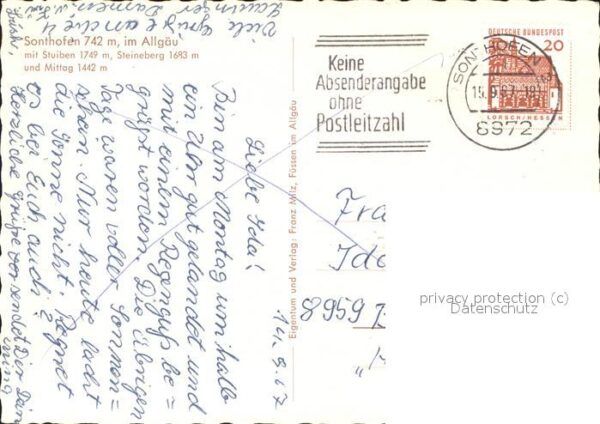 Sonthofen 742 m, im Allgäu
mit Stuiben 1749 m, Steineberg 1683 m
und Mittag 1442 m
14. 9. 67
Liebe Ida!
Bin am Montag um halb
ein Uhr gut gelandet und
mit einem Regenguß be=
grüßt worden. Die übrigen
Tage waren voller Sonnen=
schein. Nur heute lacht
die Sonne nicht. Regnet
es bei Euch auch?
Herzliche Grüße versendet Dir Deine
Viele Grüße an die
Eigentum und Verlag: Franz Milz, Füssen im Allgäu
Keine
Absenderangabe
ohne
Postleitzahl
SONTHOFEN
15.9.67
8972
DEUTSCHE BUNDESPOST
20
LORSCH/HESSEN
Fra
Ida
8959
privacy protection (c)
Datenschutz